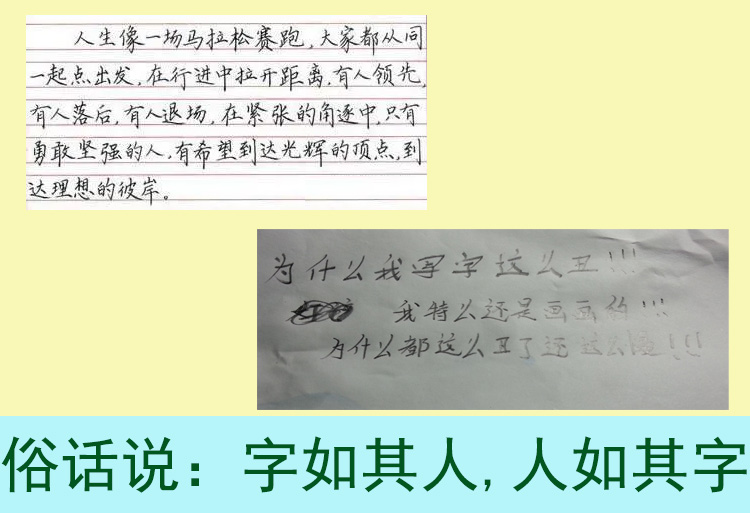 人生像一场马拉松赛跑,大家都从同
一起点出发,在行进中拉开距离,有人领先,
有人落后,有人退场,在紧张的角逐中,只有
勇敢坚强的人,有希望到达光辉的顶点,到
达理想的彼岸。
为什么我写字这么丑!!!
我特么还是画画的!!!
为什么都这么丑了还这么!!!
俗话说：字如其人,人如其字